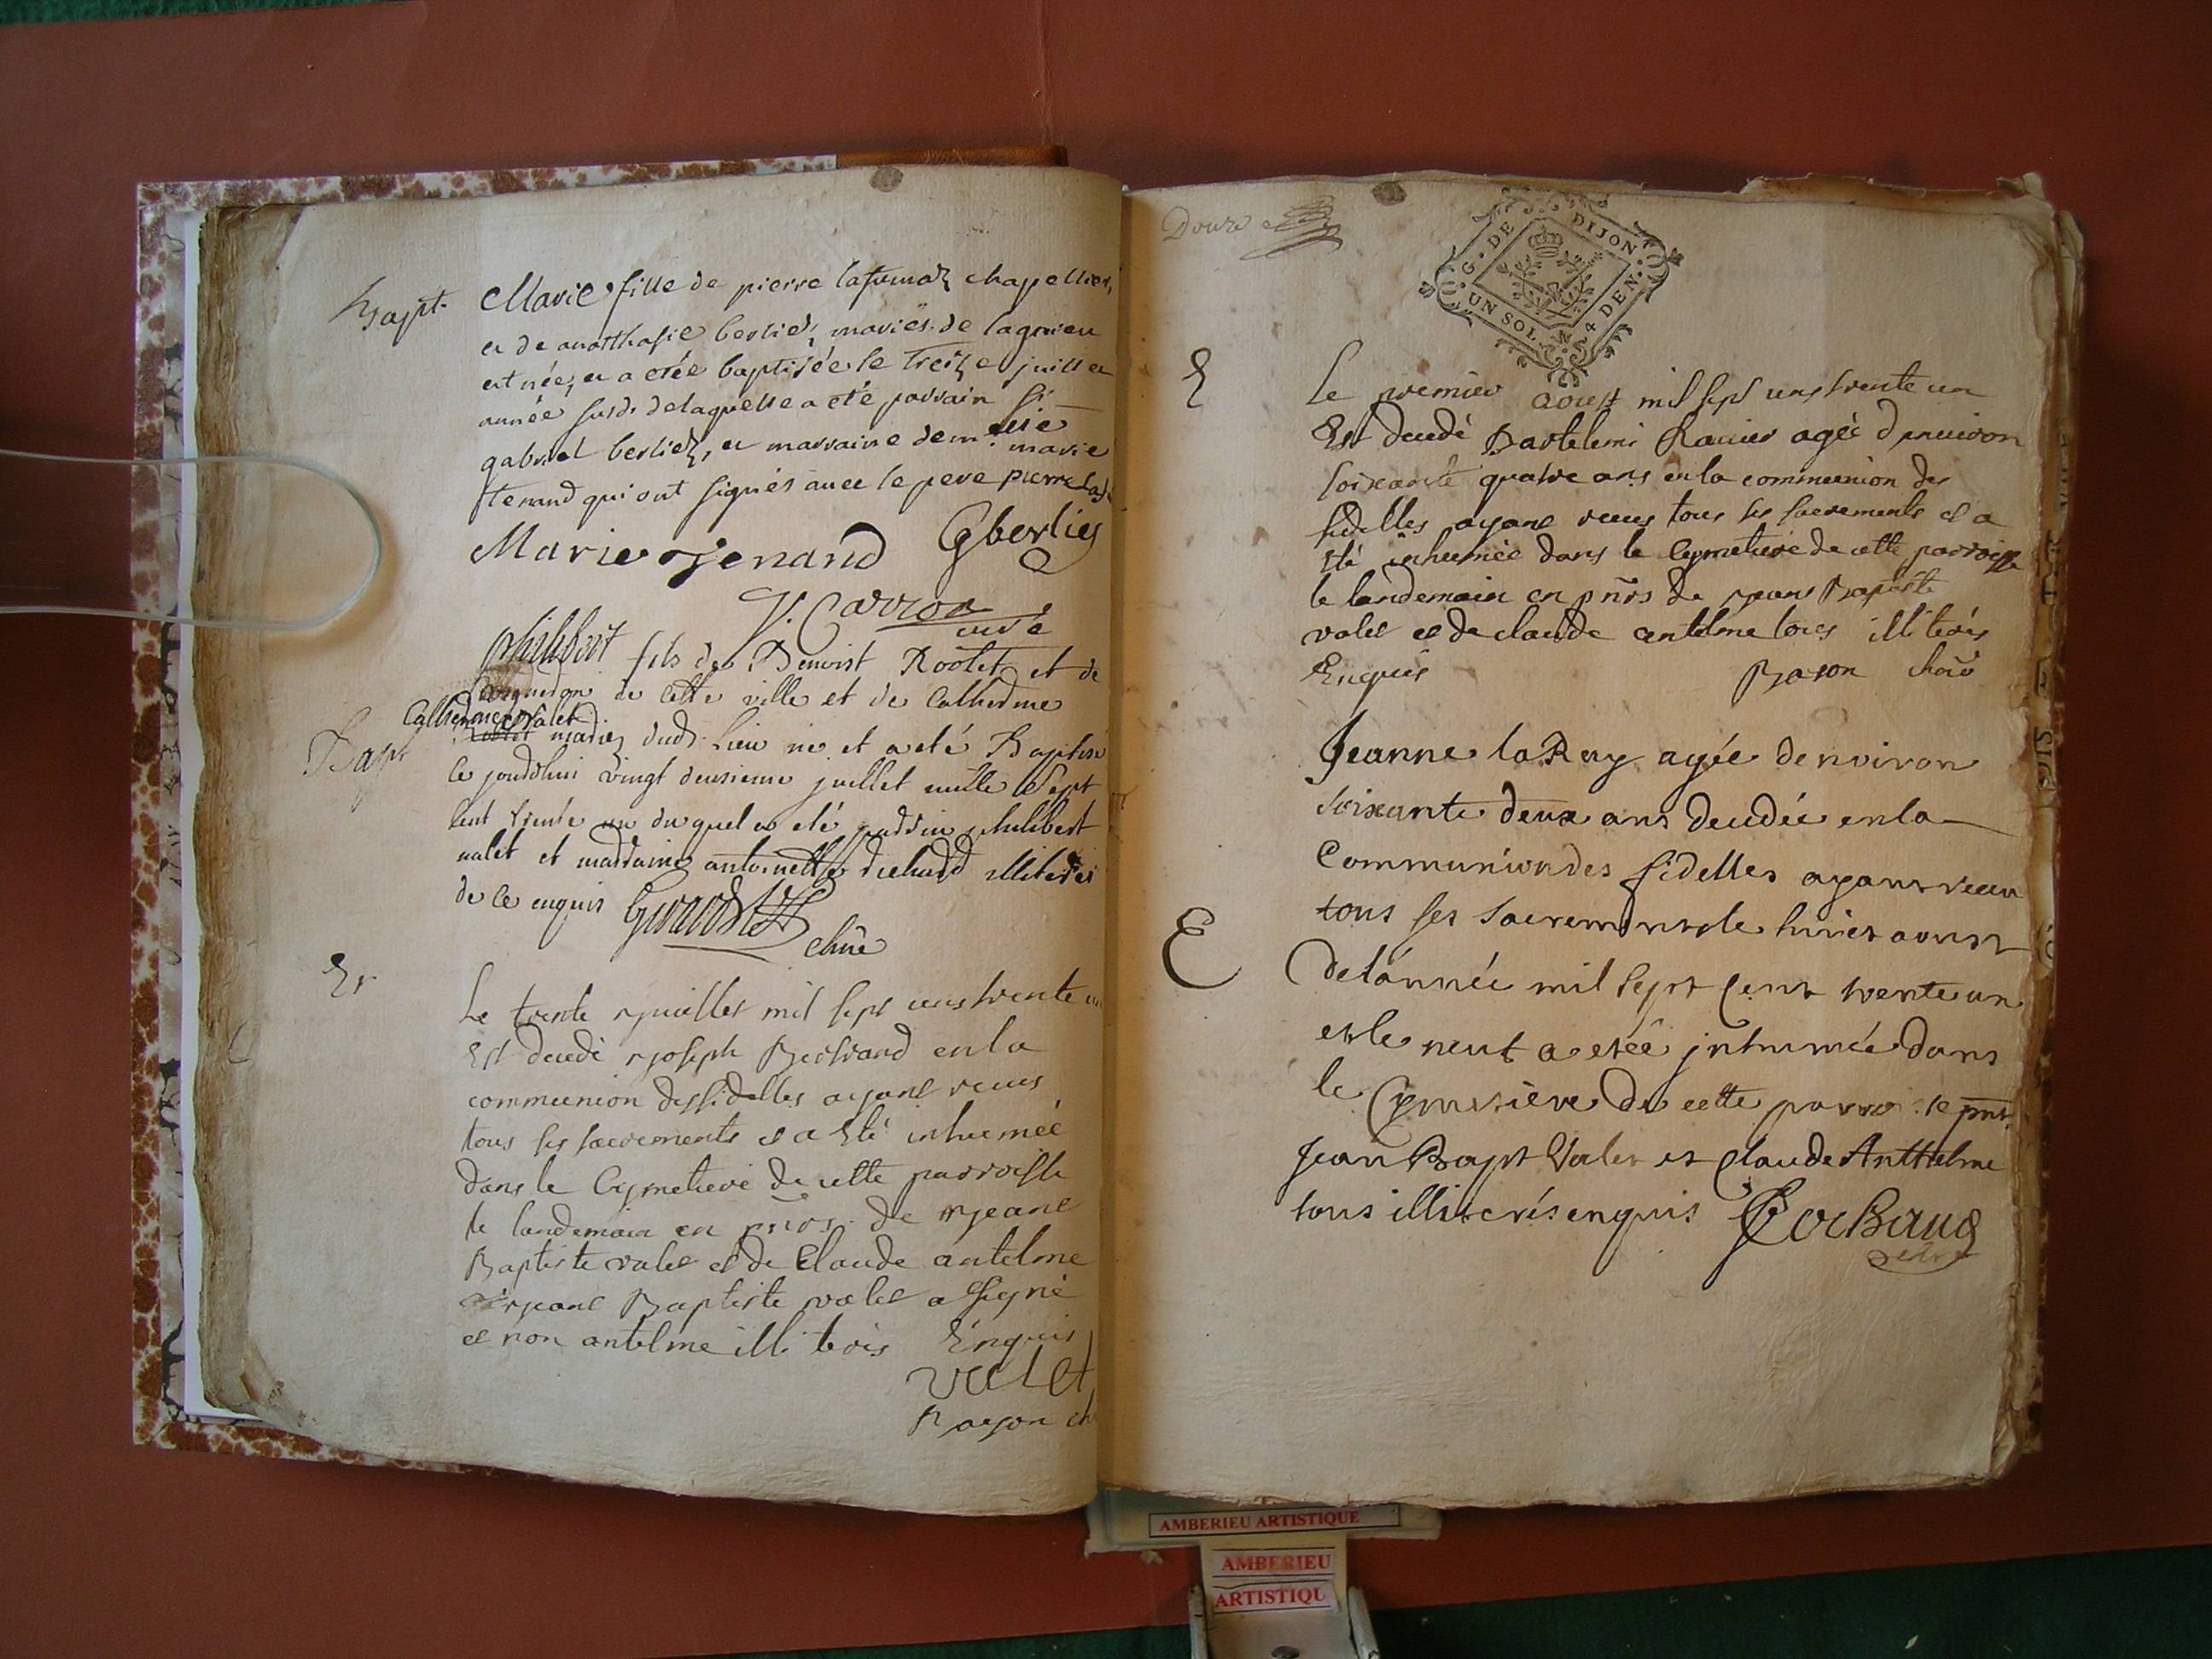 Bapt.
Marie fille de pierre lafumaz chapellier,
et de anatthasie berliez mariës de lagnieu
est née, et a etée baptisée le treize juillet
année susd. de laquelle a eté parrain sr
gabriel berliez, et marraine demelle marie
tenand qui ont signés avec le pere pierre
Marie tenand Gberliez
J. Carron
curé
philibert fils de Benoist Rostet et de
de cette ville et de Catherine
Catherine valet
Bapt
mariez dud. lieu né et a eté Baptisé
ce jourdhui vingt deusieme juillet mille Sept
cent trente un duquel a eté parrin philibert
valet et marraine antoinette illiterés
de ce enquis
chne
Er
Le trente rjuillet mil sept cens trente un
Est decedé rjoseph Bertrand en la
communion des fidelles ayant receus
tous ses sacrements et a Eté inhumeé
dans le Cymetiere de cette parroisse
le landemain en pnce de rjeant
Baptiste valet et de Claude antelme
rjeant Baptiste valet a signé
et non antelme illiterés Enquis
valet
Rayon ch
Douze
G. DE DIJON
UN SOL 4 DEN.
E
Le premier aoust mil sept cens trente un
Est decedé Bartelemi Ravier ageé d'environ
soixante quatre ans en la communion des
fidelles ayant receus tous ses sacrements et a
Eté inhumeé dans le Cymetiere de cette parroisse
le landemain en pnce de rjeant Baptiste
valet et de claude antelme tous illiterés
Enquis Rayon
Jeanne laRey agée denviron
soixante deux ans decedée en la
Communion des fidelles ayant receu
tous ses sacrements le huict aoust
E
de lánnée mil sept cent trente un
et le neuf a etée jnhumée dans
le Cymetiere de cette parroisse pnt
Jean Bapt Valet et Claude Antthelme
tous illiterés enquis
AMBERIEU ARTISTIQUE
AMBERIEU
ARTISTIQU